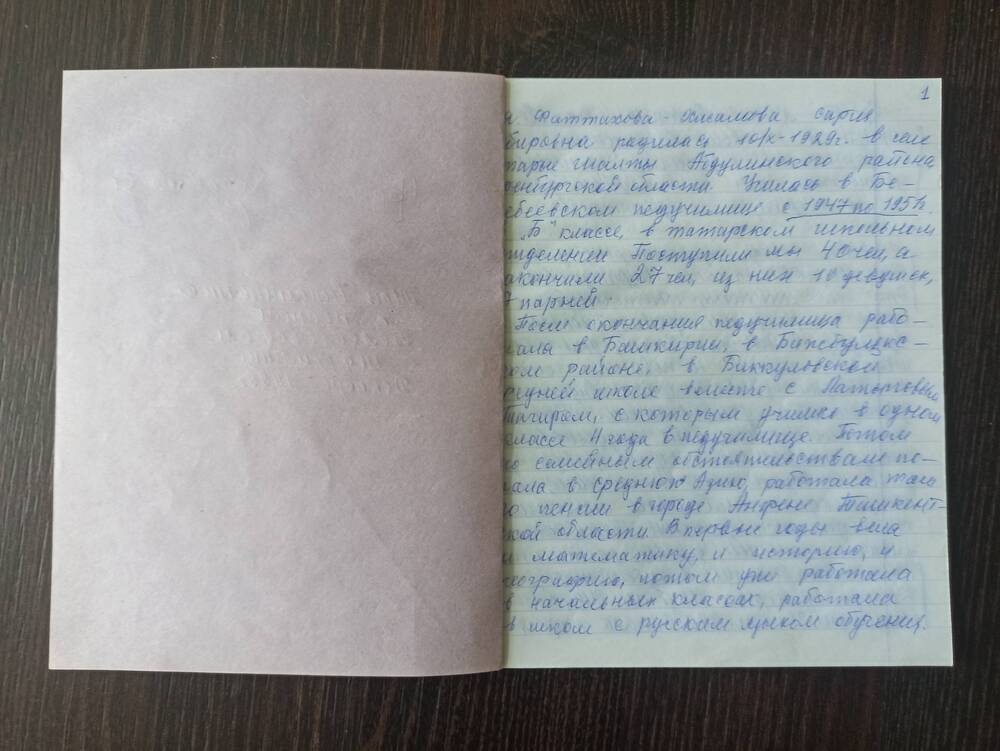 1
я Фаттахова-Хисамова Сария
бировна родилась 10/X-1929г. в селе
тарые Шалты Абдулинского района
ренбургской области. Училась в Бе-
ебеевском педучилище с 1947 по 195
"Б" классе, в татарском школьном
тделении Поступили мы 40 чел, а
акончили 27 чел, из них 10 девушек,
7 парней.
После окончания педучилища рабо-
тала в Башкирии, в Бижбулякс-
ком районе, в Биккуловской
средней школе вместе с Латыповым
с которым училис в одном
классе 4 года в педучилище. Потом
по семейным обстоятельствам по-
хала в среднюю Азию, работала там
о пенсии в городе Ангрене Ташкент-
кой области. В первые годы вела
и математику, и историю, и
географию, потом уже работала
в начальных классах, работала
в школ с русским языком обучения.